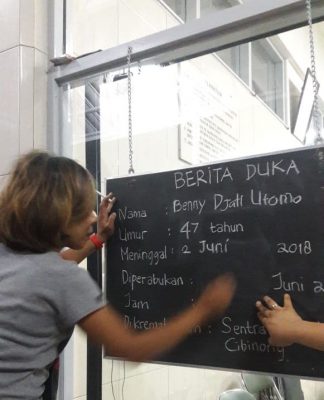 BERITA DUKA
Nama : Benny Djati Utomo
Umur : 47 tahun
Meninggal : 2 Juni 2018
Diperabukan : Juni
Jam :
: Sentra
Cibinong